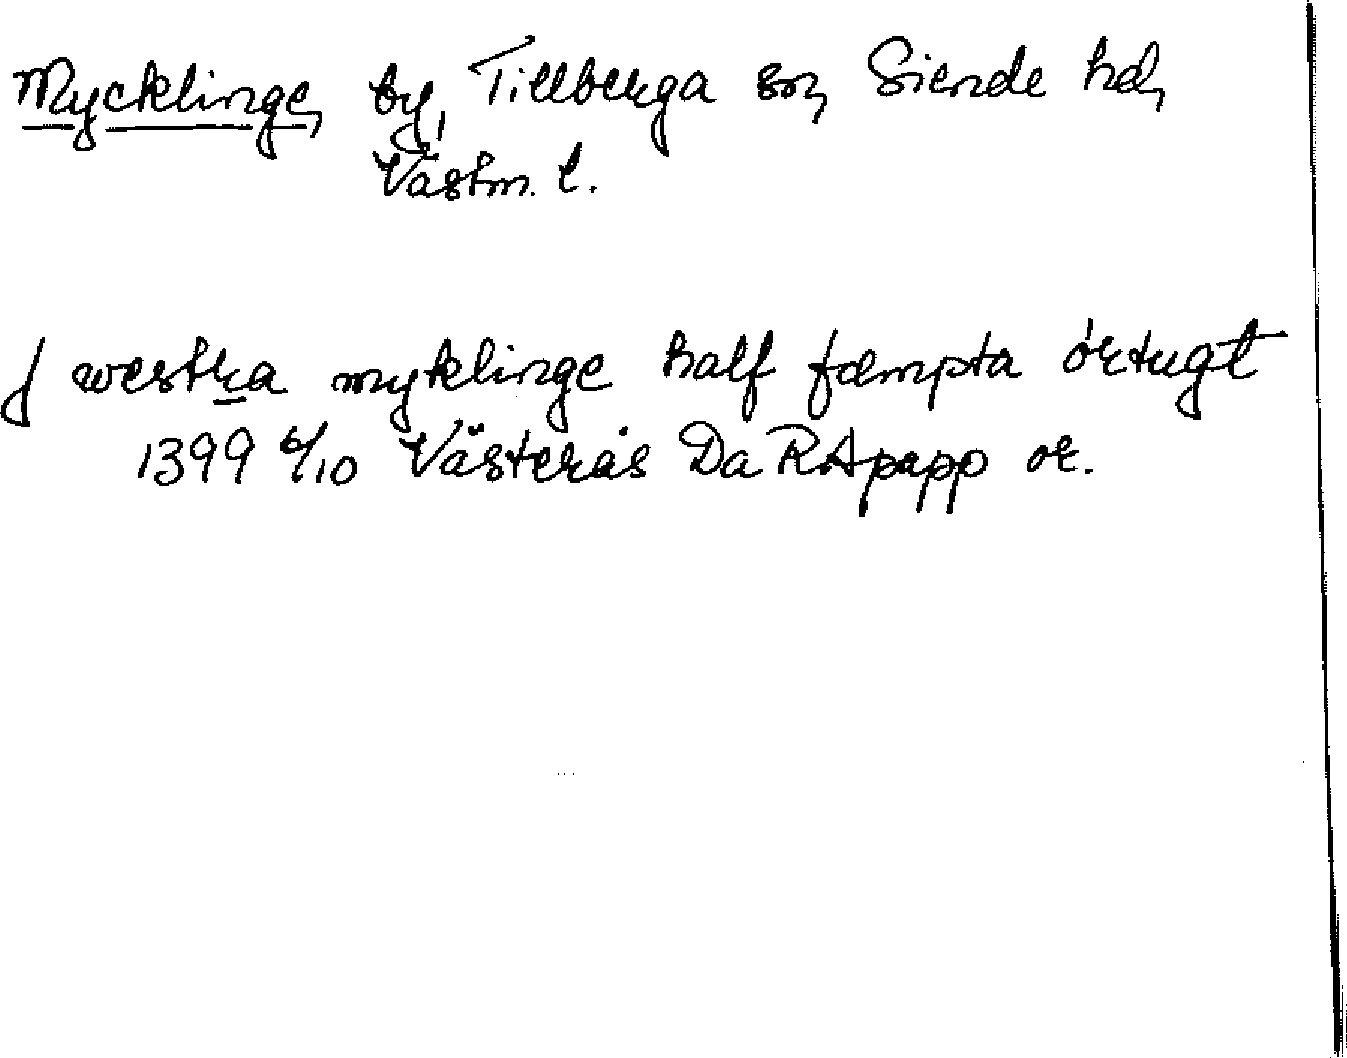 Mycklinge, by, Tillberga sn, Siende hd,
Västm. l.
J westra myklinge half fæmpta örtugt
1399 6/10 Västerås Da RApapp or.